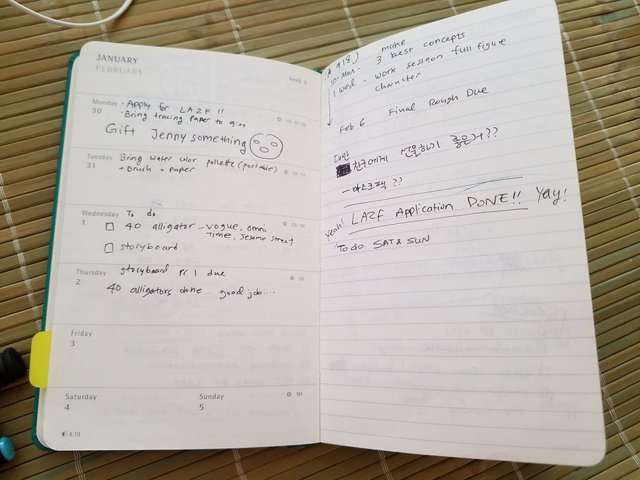 JANUARY
FEBRUARY
week 5
Monday
30
· Apply for LAZF !!
· Bring tracing paper to
Gift Jenny something
Tuesday
31
Bring water color palette (portable)
+ Brush + paper
Wednesday
1
To do
40 alligator - vogue, omni
time, sesame street
storyboard
Thursday
2
storyboard due
40 alligators done... good job....
Friday
3
Saturday
4
Sunday
5
4:19
make
Mon. 3 best concepts
wed - work session full figure
character
Feb 6 Final Rough Due
대만
친구에게 선물하기 좋은거??
- 마스크팩 ??
yeah! LAZF Application DONE!! Yay!
To do SAT & SUN